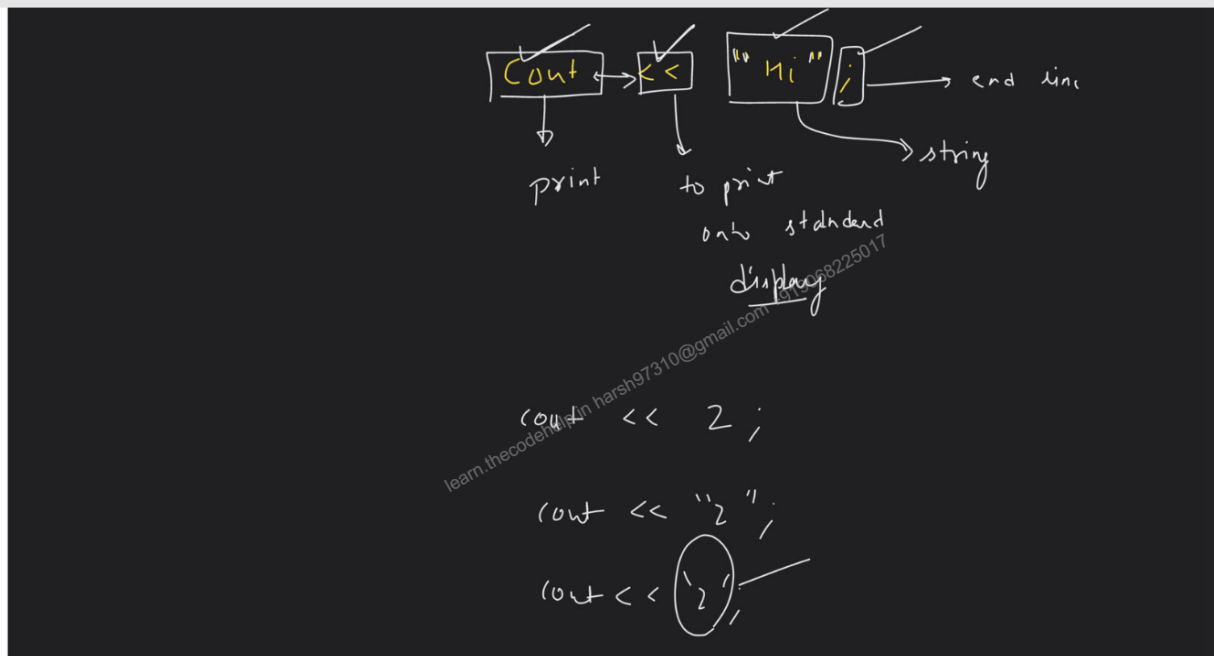 Cout << "Hi" ; → end line
→ string
print to print
onto standard
display
learn.thecodehelp.in harsh97310@gmail.com
cout << 2 ;
cout << "2" ;
cout << '2' ;